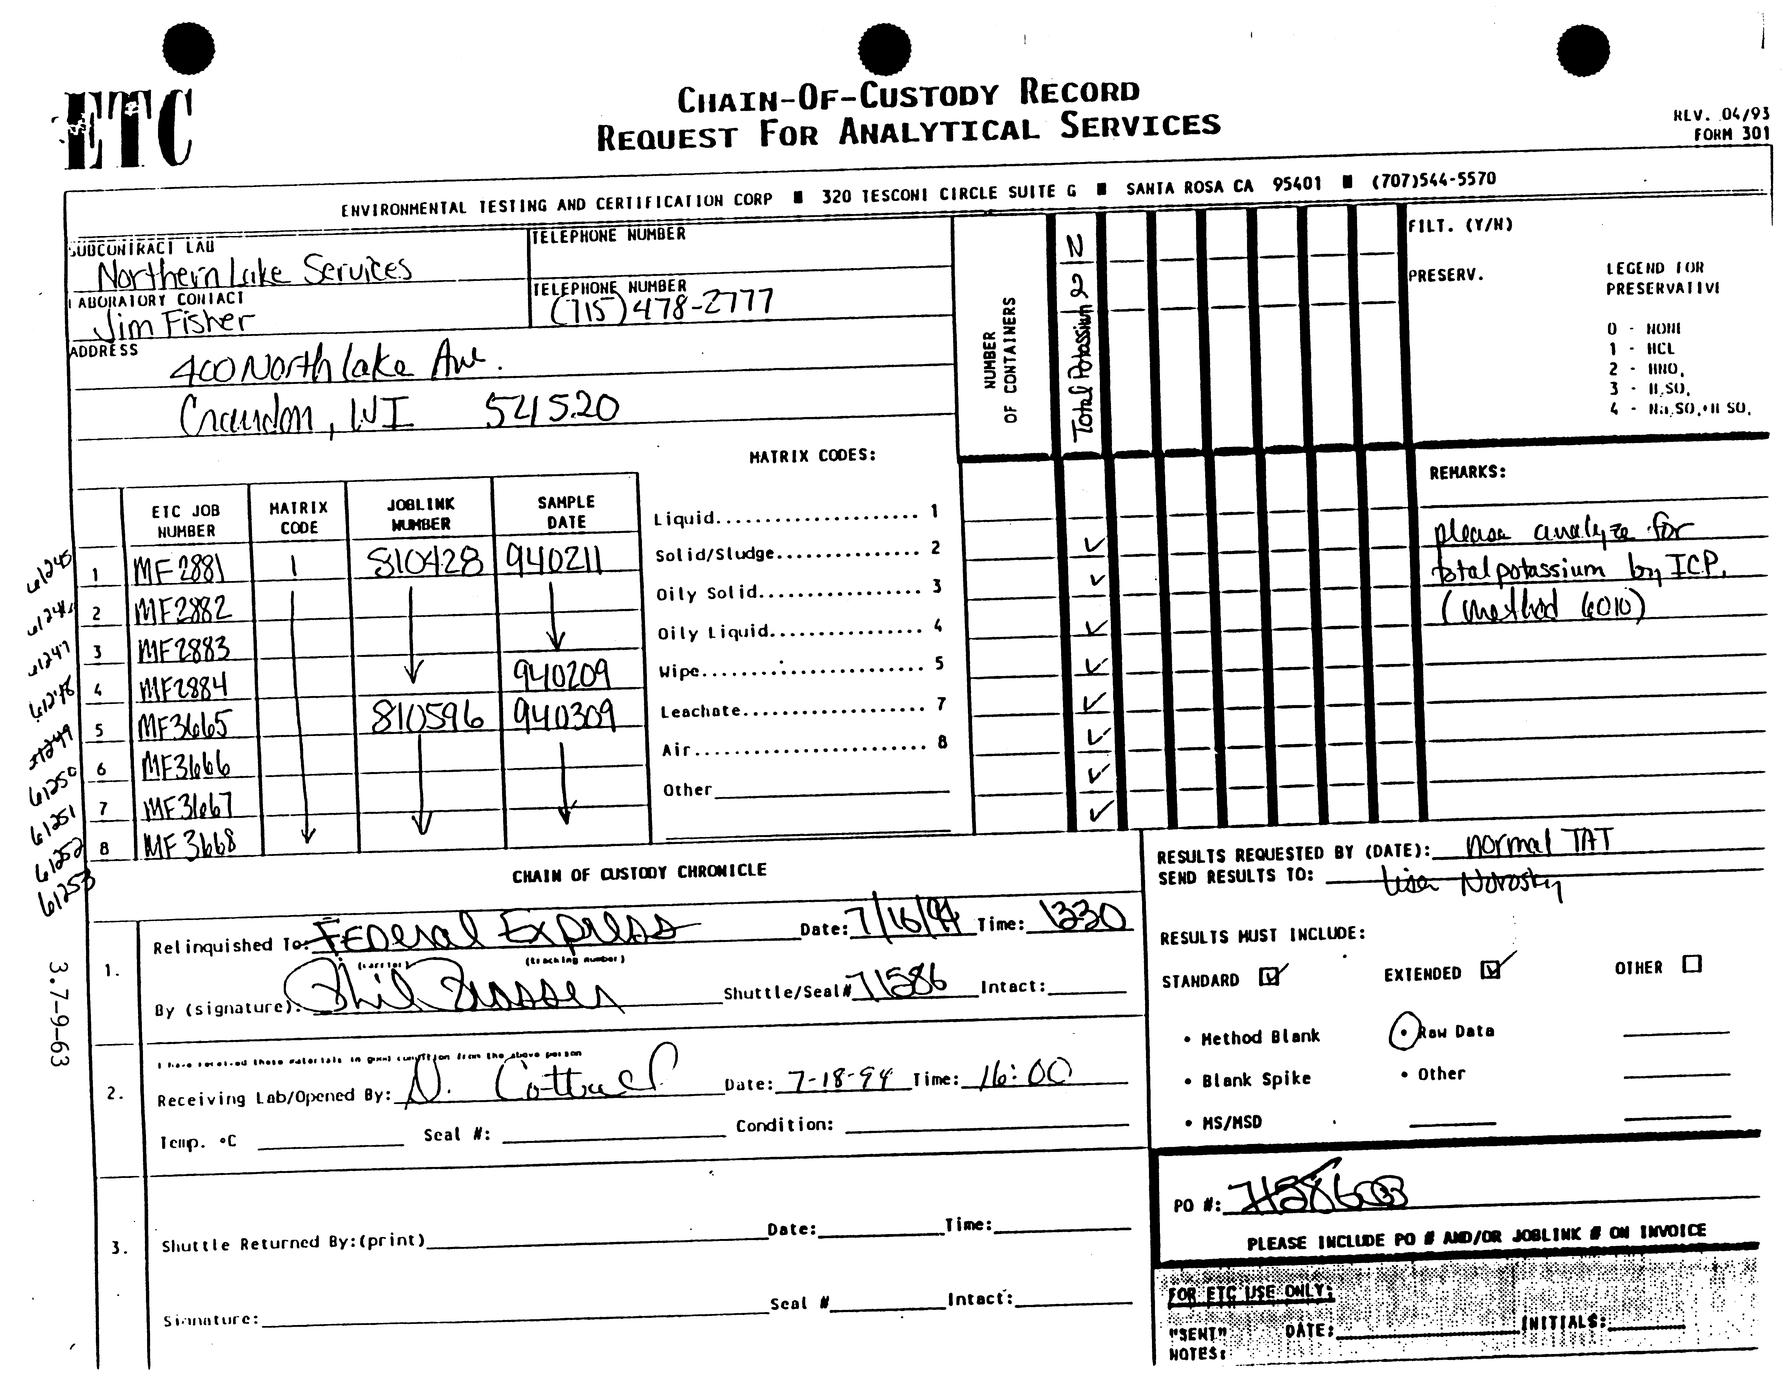 ETC
CHAIN-OF-CUSTODY RECORD
REQUEST FOR ANALYTICAL SERVICES
REV. 04/93
FORM 301
ENVIRONMENTAL TESTING AND CERTIFICATION CORP ■ 320 TESCONI CIRCLE SUITE G ■ SANTA ROSA CA 95401 ■ (707)544-5570
SUBCONTRACT LAB
Northern Lake Services
TELEPHONE NUMBER
LABORATORY CONTACT
Jim Fisher
TELEPHONE NUMBER
(715)478-2777
ADDRESS
400 North Lake Ave.
Crandon, WI 54520
NUMBER
OF CONTAINERS
Total Potassium 2 N
FILT. (Y/N)
PRESERV.
LEGEND FOR
PRESERVATIVE
0 - NONE
1 - HCL
2 - HNO,
3 - H,SO,
4 - Na,SO,+H SO,
MATRIX CODES:
Liquid.................... 1
Solid/Sludge.............. 2
Oily Solid................ 3
Oily Liquid............... 4
Wipe...................... 5
Leachate.................. 7
Air....................... 8
Other
ETC JOB NUMBER MATRIX CODE JOBLINK NUMBER SAMPLE DATE
61245 1 MF2881 1 810428 940211 ✓
61246 2 MF2882 ✓
61247 3 MF2883 ✓
61248 4 MF2884 940209 ✓
61249 5 MF3665 810596 940309 ✓
61250 6 MF3666 ✓
61251 7 MF3667 ✓
61252 8 MF3668 ✓
61253
REMARKS:
please analyze for
total potassium by ICP.
(method 6010)
CHAIN OF CUSTODY CHRONICLE
1.
Relinquished To: Federal Express Date: 7/16/94 Time: 1330
(carrier) (tracking number)
By (signature): Phil Shuttle/Seal# 71586 Intact:
2.
I have received these materials in good condition from the above person
Receiving Lab/Opened By: N. Date: 7-18-94 Time: 16:00
Temp. °C Seal #: Condition:
3.
Shuttle Returned By:(print) Date: Time:
Signature: Seal # Intact:
3.7-9-63
RESULTS REQUESTED BY (DATE): normal TAT
SEND RESULTS TO: Lisa Norosky
RESULTS MUST INCLUDE:
STANDARD ☑ EXTENDED ☑ OTHER ☐
• Method Blank • Raw Data
• Blank Spike • Other
• MS/MSD
PO #:
PLEASE INCLUDE PO # AND/OR JOBLINK # ON INVOICE
FOR ETC USE ONLY:
"SENT" DATE: INITIALS:
NOTES: